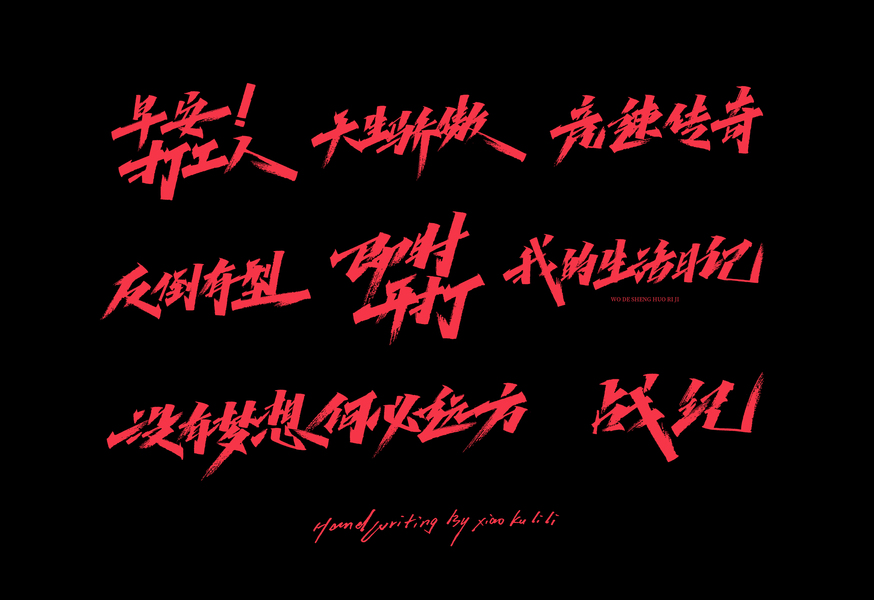 早安！
打工人
天生骄傲
竞速传奇
反倒有型
即时
开打
我的生活日记
WO DE SHENG HUO RI JI
没有梦想何必远方
战纪
Hand writing By xiao ku li li